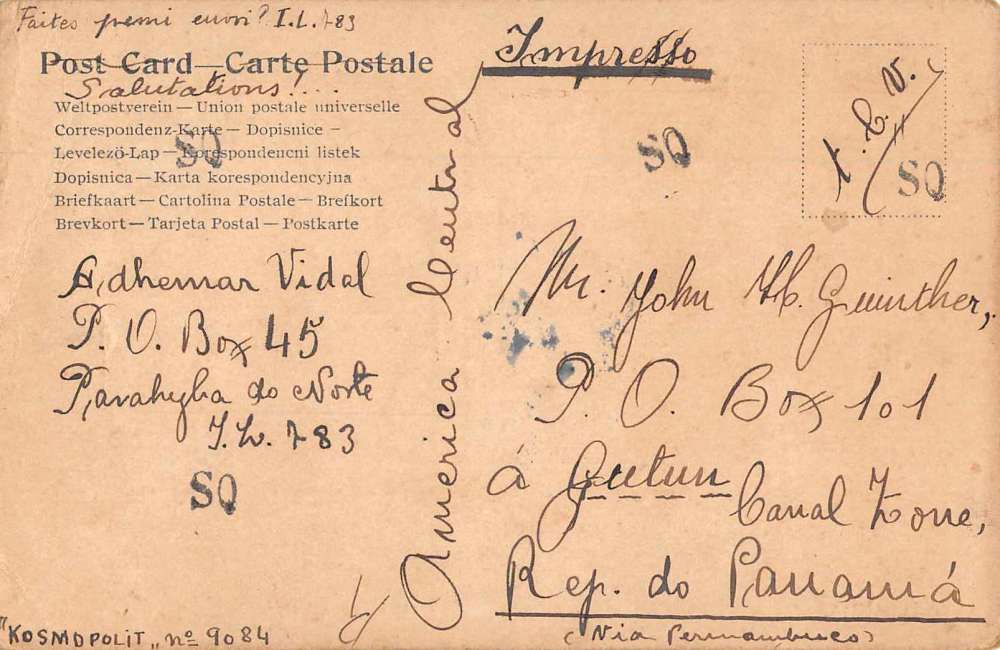 Faites premi envoi? I.L. 783
Post Card—Carte Postale
Salutations!...
Weltpostverein — Union postale universelle
Correspondenz-Karte — Dopisnice –
Levelezö-Lap — Korespondencni listek
Dopisnica — Karta korespondencyjna
Briefkaart — Cartolina Postale — Brefkort
Brevkort — Tarjeta Postal — Postkarte
SQ
Adhemar Vidal
P. O. Box 45
Parahyba do Norte
I.L. 783
SQ
"KOSMOPOLIT„ nº 9084
America Central
Impresso
SQ
T. C. V.
SQ
Mr. John H. Guinther,
P. O. Box 101
á Gutun
Canal Zone,
Rep. do Panamá
(Via Pernambuco)